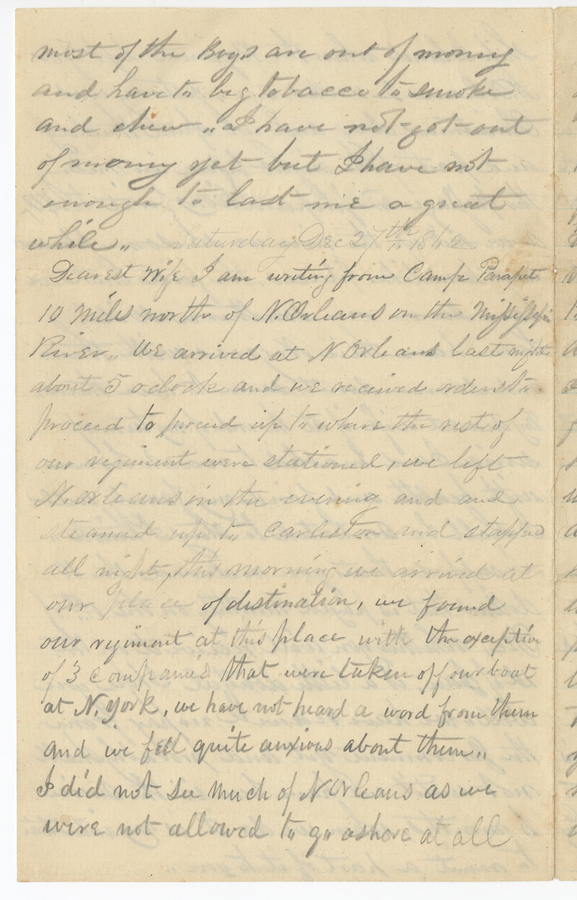 most of the Boys are out of money
and have to beg tobacco to smoke
and chew,, I have not got out
of money yet but I have not
enough to last me a great
while,, Saturday Dec 27th 1862
Dearest Wife I am writing from Camp Parapet
10 miles north of N. Orleans on the Mississippi
River,, We arrived at N Orleans last night
about 5 oclock and we received orders to
proceed to proceed up to where the rest of
our regiment were stationed, we left
N. orleans in the evening and and
steamed up to Carleton and stopped
all night, this morning we arrived at
our place of destination, we found
our regiment at this place with the exception
of 3 companies that were taken off our boat
at N. york, we have not heard a word from them
and we fell quite anxious about them,,
I did not see much of N Orleans as we
were not allowed to go ashore at all